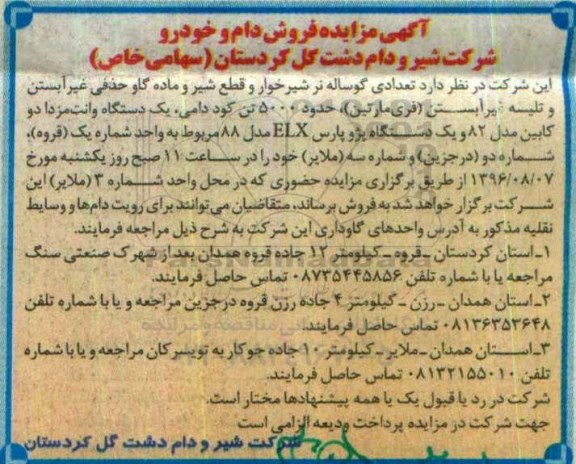 آگهی مزایده فروش دام و خودرو
شرکت شیر و دام دشت گل کردستان (سهامی خاص)
این شرکت در نظر دارد تعدادی گوساله نر شیرخوار و قطع شیر و ماده گاو حذفی غیرآبستن
و تلیسه غیرآبستن (فری‌مارتین)، حدود ۵۰۰۰ تن کود دامی، یک دستگاه وانت‌مزدا دو
کابین مدل ۸۲ و یک دستگاه پژو پارس ELX مدل ۸۸ مربوط به واحد شماره یک (قروه)،
شماره دو (درجزین) و شماره سه (ملایر) خود را در ساعت ۱۱ صبح روز یکشنبه مورخ
۱۳۹۶/۰۸/۰۷ از طریق برگزاری مزایده حضوری که در محل واحد شماره ۳ (ملایر) این
شرکت برگزار خواهد شد به فروش برساند، متقاضیان می‌توانند برای رویت دام‌ها و وسایط
نقلیه مذکور به آدرس واحدهای گاوداری این شرکت به شرح ذیل مراجعه فرمایند.
۱ـ استان کردستان ـ قروه ـ کیلومتر ۱۲ جاده قروه همدان بعد از شهرک صنعتی سنگ
مراجعه یا با شماره تلفن ۰۸۷۳۵۴۴۵۸۵۶ تماس حاصل فرمایند.
۲ـ استان همدان ـ رزن ـ کیلومتر ۴ جاده رزن قروه درجزین مراجعه و یا با شماره تلفن
۰۸۱۳۶۳۵۳۶۴۸ تماس حاصل فرمایند.
۳ـ استان همدان ـ ملایر ـ کیلومتر ۱۰ جاده جوکار به تویسرکان مراجعه و یا با شماره
تلفن ۰۸۱۳۲۱۵۵۰۱۰ تماس حاصل فرمایند.
شرکت در رد یا قبول یک یا همه پیشنهادها مختار است.
جهت شرکت در مزایده پرداخت ودیعه الزامی است
شرکت شیر و دام دشت گل کردستان